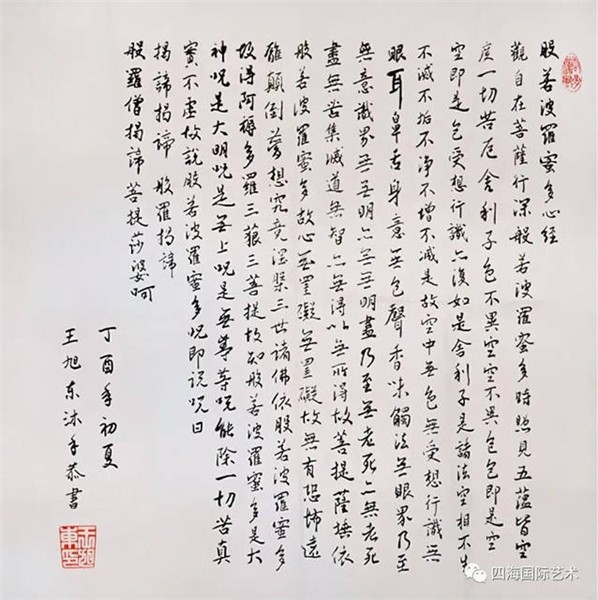 般若波羅蜜多心經
觀自在菩薩行深般若波羅蜜多時照見五蘊皆空
度一切苦厄舍利子色不異空空不異色色即是空
空即是色受想行識亦復如是舍利子是諸法空相不生
不滅不垢不淨不增不減是故空中無色無受想行識無
眼耳鼻舌身意無色聲香味觸法无眼界乃至
無意識界无无明亦无無明盡乃至无老死亦無老死
盡無苦集滅道無智亦無得以無所得故菩提薩埵依
般若波羅蜜多故心無罣礙無罣礙故無有恐怖遠
離顛倒夢想究竟涅槃三世諸佛依般若波羅蜜多
故得阿耨多羅三藐三菩提故知般若波羅蜜多是大
神咒是大明咒是无上咒是無等等咒能除一切苦真
實不虛故說般若波羅蜜多咒即说咒曰
揭諦揭諦 般羅揭諦
般羅僧揭諦菩提莎婆呵
丁酉年初夏
王旭东沐手恭書
四海国际艺术